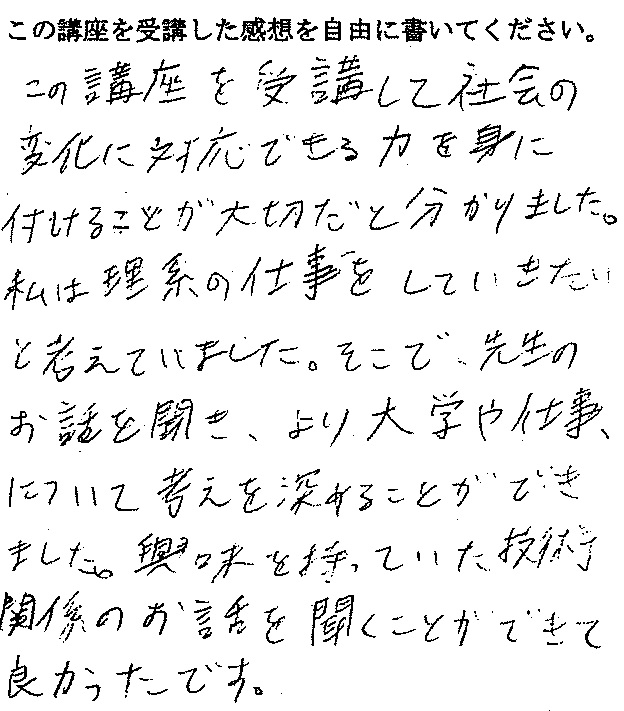 この講座を受講した感想を自由に書いてください。
この講座を受講して社会の
変化に対応できる力を身に
付けることが大切だと分かりました。
私は理系の仕事をしていきたい
と考えていました。そこで、先生の
お話を聞き、より大学や仕事、
について考えを深めることができ
ました。興味を持っていた技術
関係のお話を聞くことができて
良かったです。